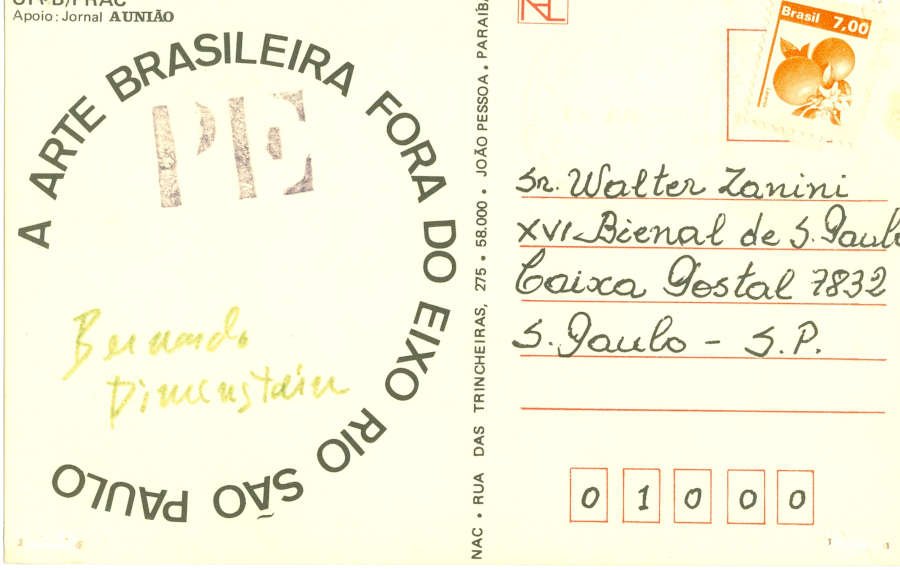 Apoio: Jornal A UNIÃO
A ARTE BRASILEIRA FORA DO EIXO RIO SÃO PAULO
PE
Bernardo
Dimenstein
NAC • RUA DAS TRINCHEIRAS, 275 • 58.000 • JOÃO PESSOA • PARAIB
Brasil 7,00
Sr. Walter Zanini
XVI Bienal de S. Paulo
Caixa Postal 7832
S. Paulo - S.P.
0 1 0 0 0